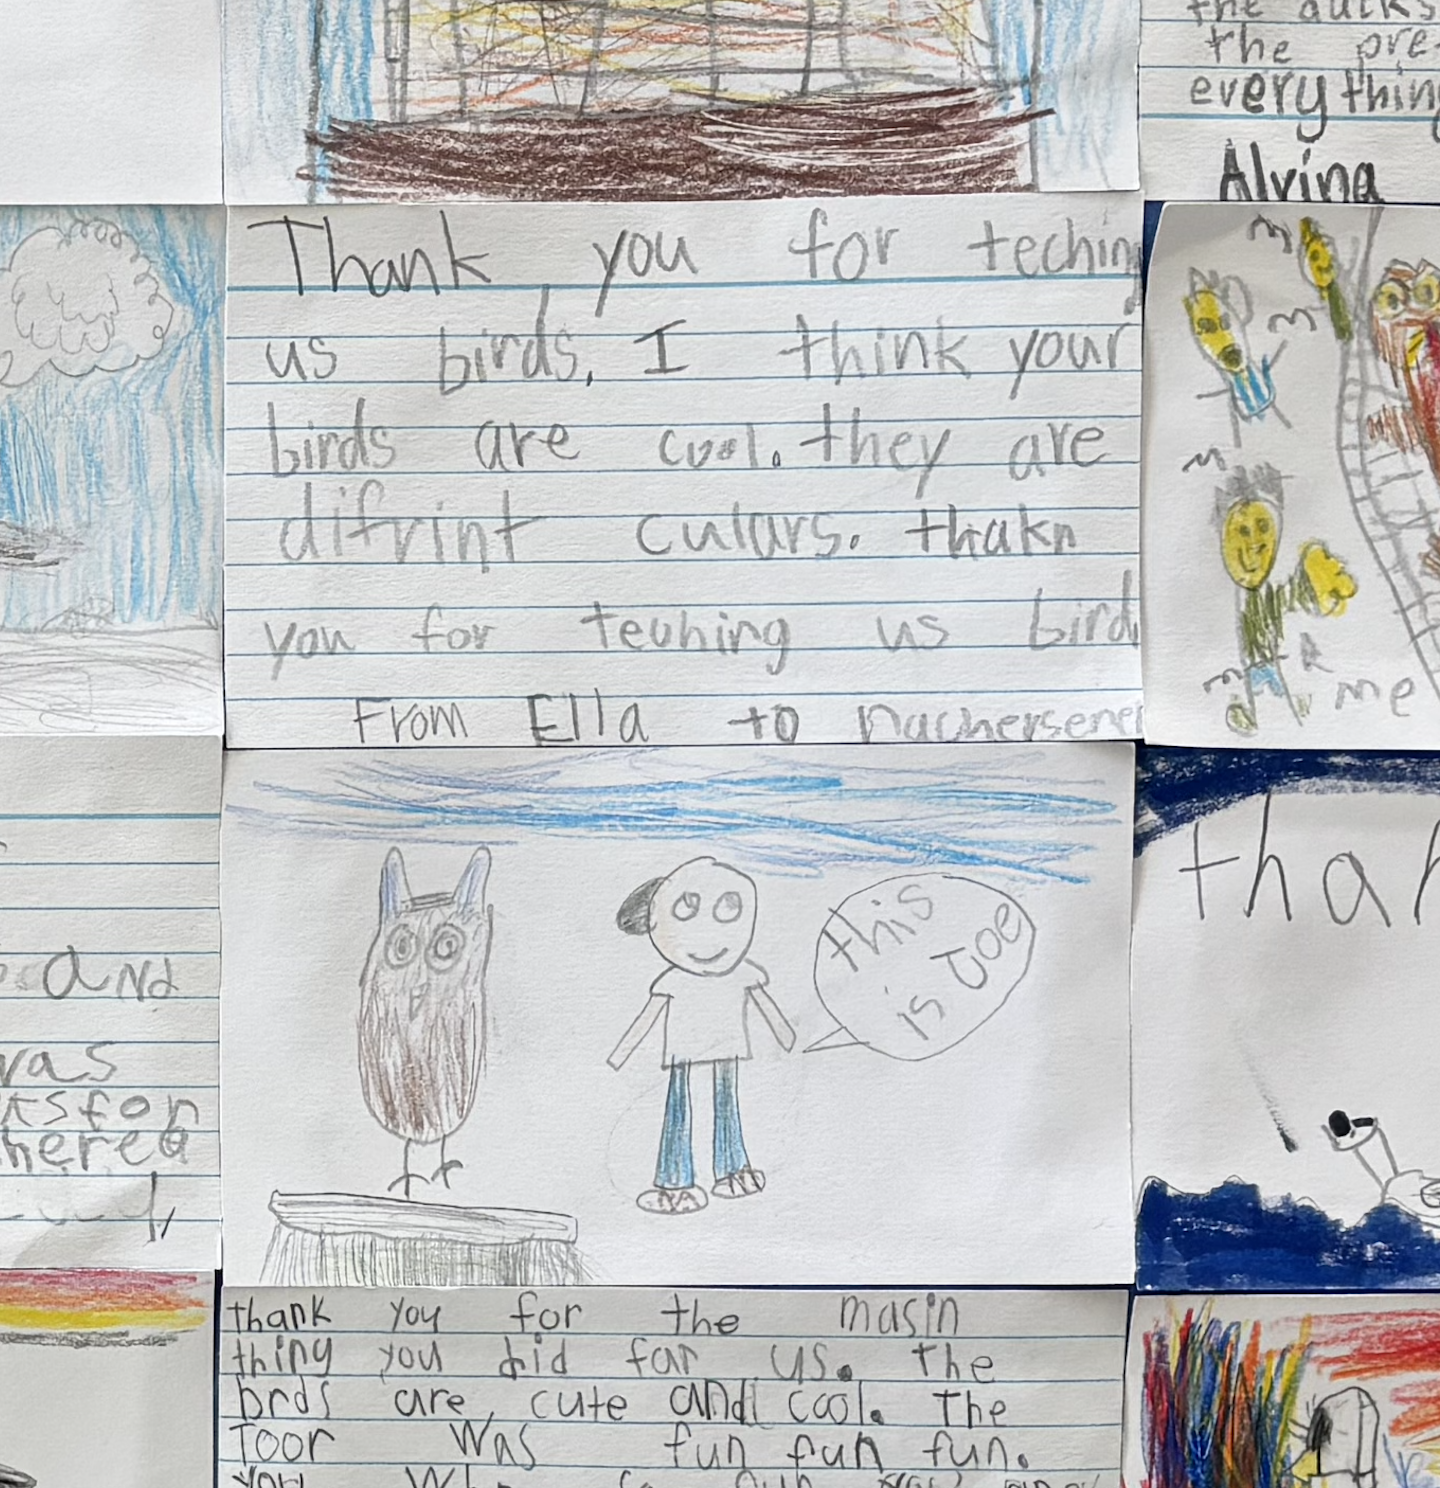 the ducks
the pre
everything
Alvina
Thank you for teching
us birds, I think your
birds are cool. they are
difrint culars. thakn
you for teching us bird
From Ella to
me
this
is Joe
than
and
was
for
thank you for the masin
thing you did for us. the
brds are cute and cool. The
Toor was fun fun fun.
you